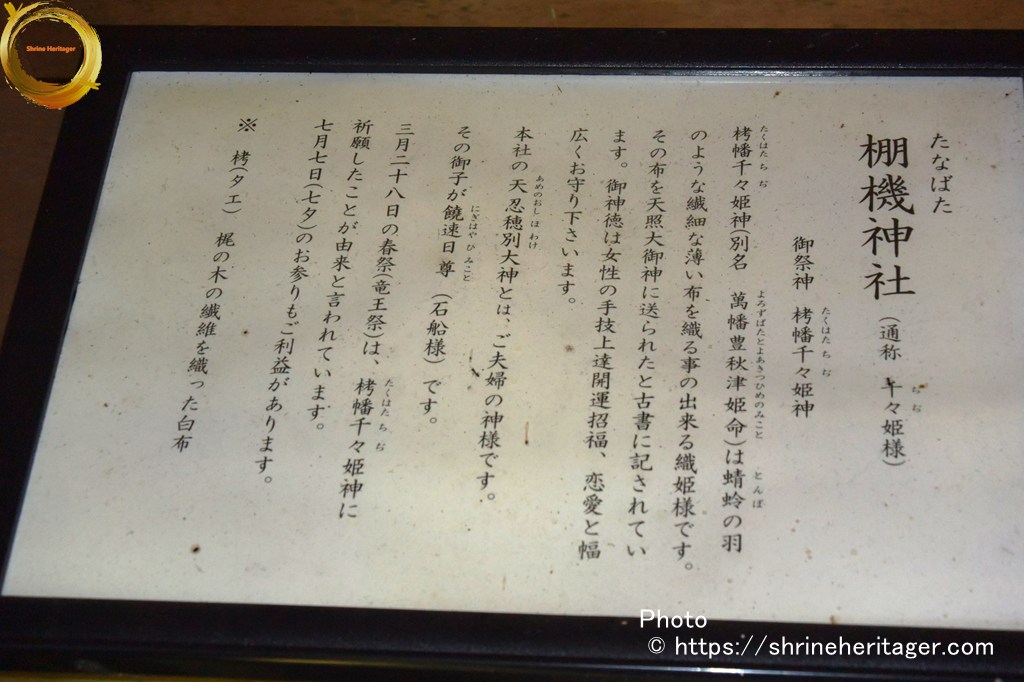 Shrine Heritager
たなばた
棚機神社(通称 千々姫様)
ちぢ
御祭神 栲幡千々姫神
たくはたちぢ
栲幡千々姫神(別名 萬幡豊秋津姫命)は蜻蛉の羽
たくはたちぢ よろずばたとよあきつひめのみこと とんぼ
のような繊細な薄い布を織る事の出来る織姫様です。
その布を天照大御神に送られたと古書に記されてい
ます。御神徳は女性の手技上達開運招福、恋愛と幅
広くお守り下さいます。
本社の天忍穂別大神とは、ご夫婦の神様です。
あめのおしほわけ
その御子が饒速日尊(石船様)です。
にぎはやひみこと
三月二十八日の春祭(竜王祭)は、栲幡千々姫神に
たくはたちぢ
祈願したことが由来と言われています。
七月七日(七夕)のお参りもご利益があります。
※ 栲(タエ) 梶の木の繊維を織った白布
Photo
© https://shrineheritager.com